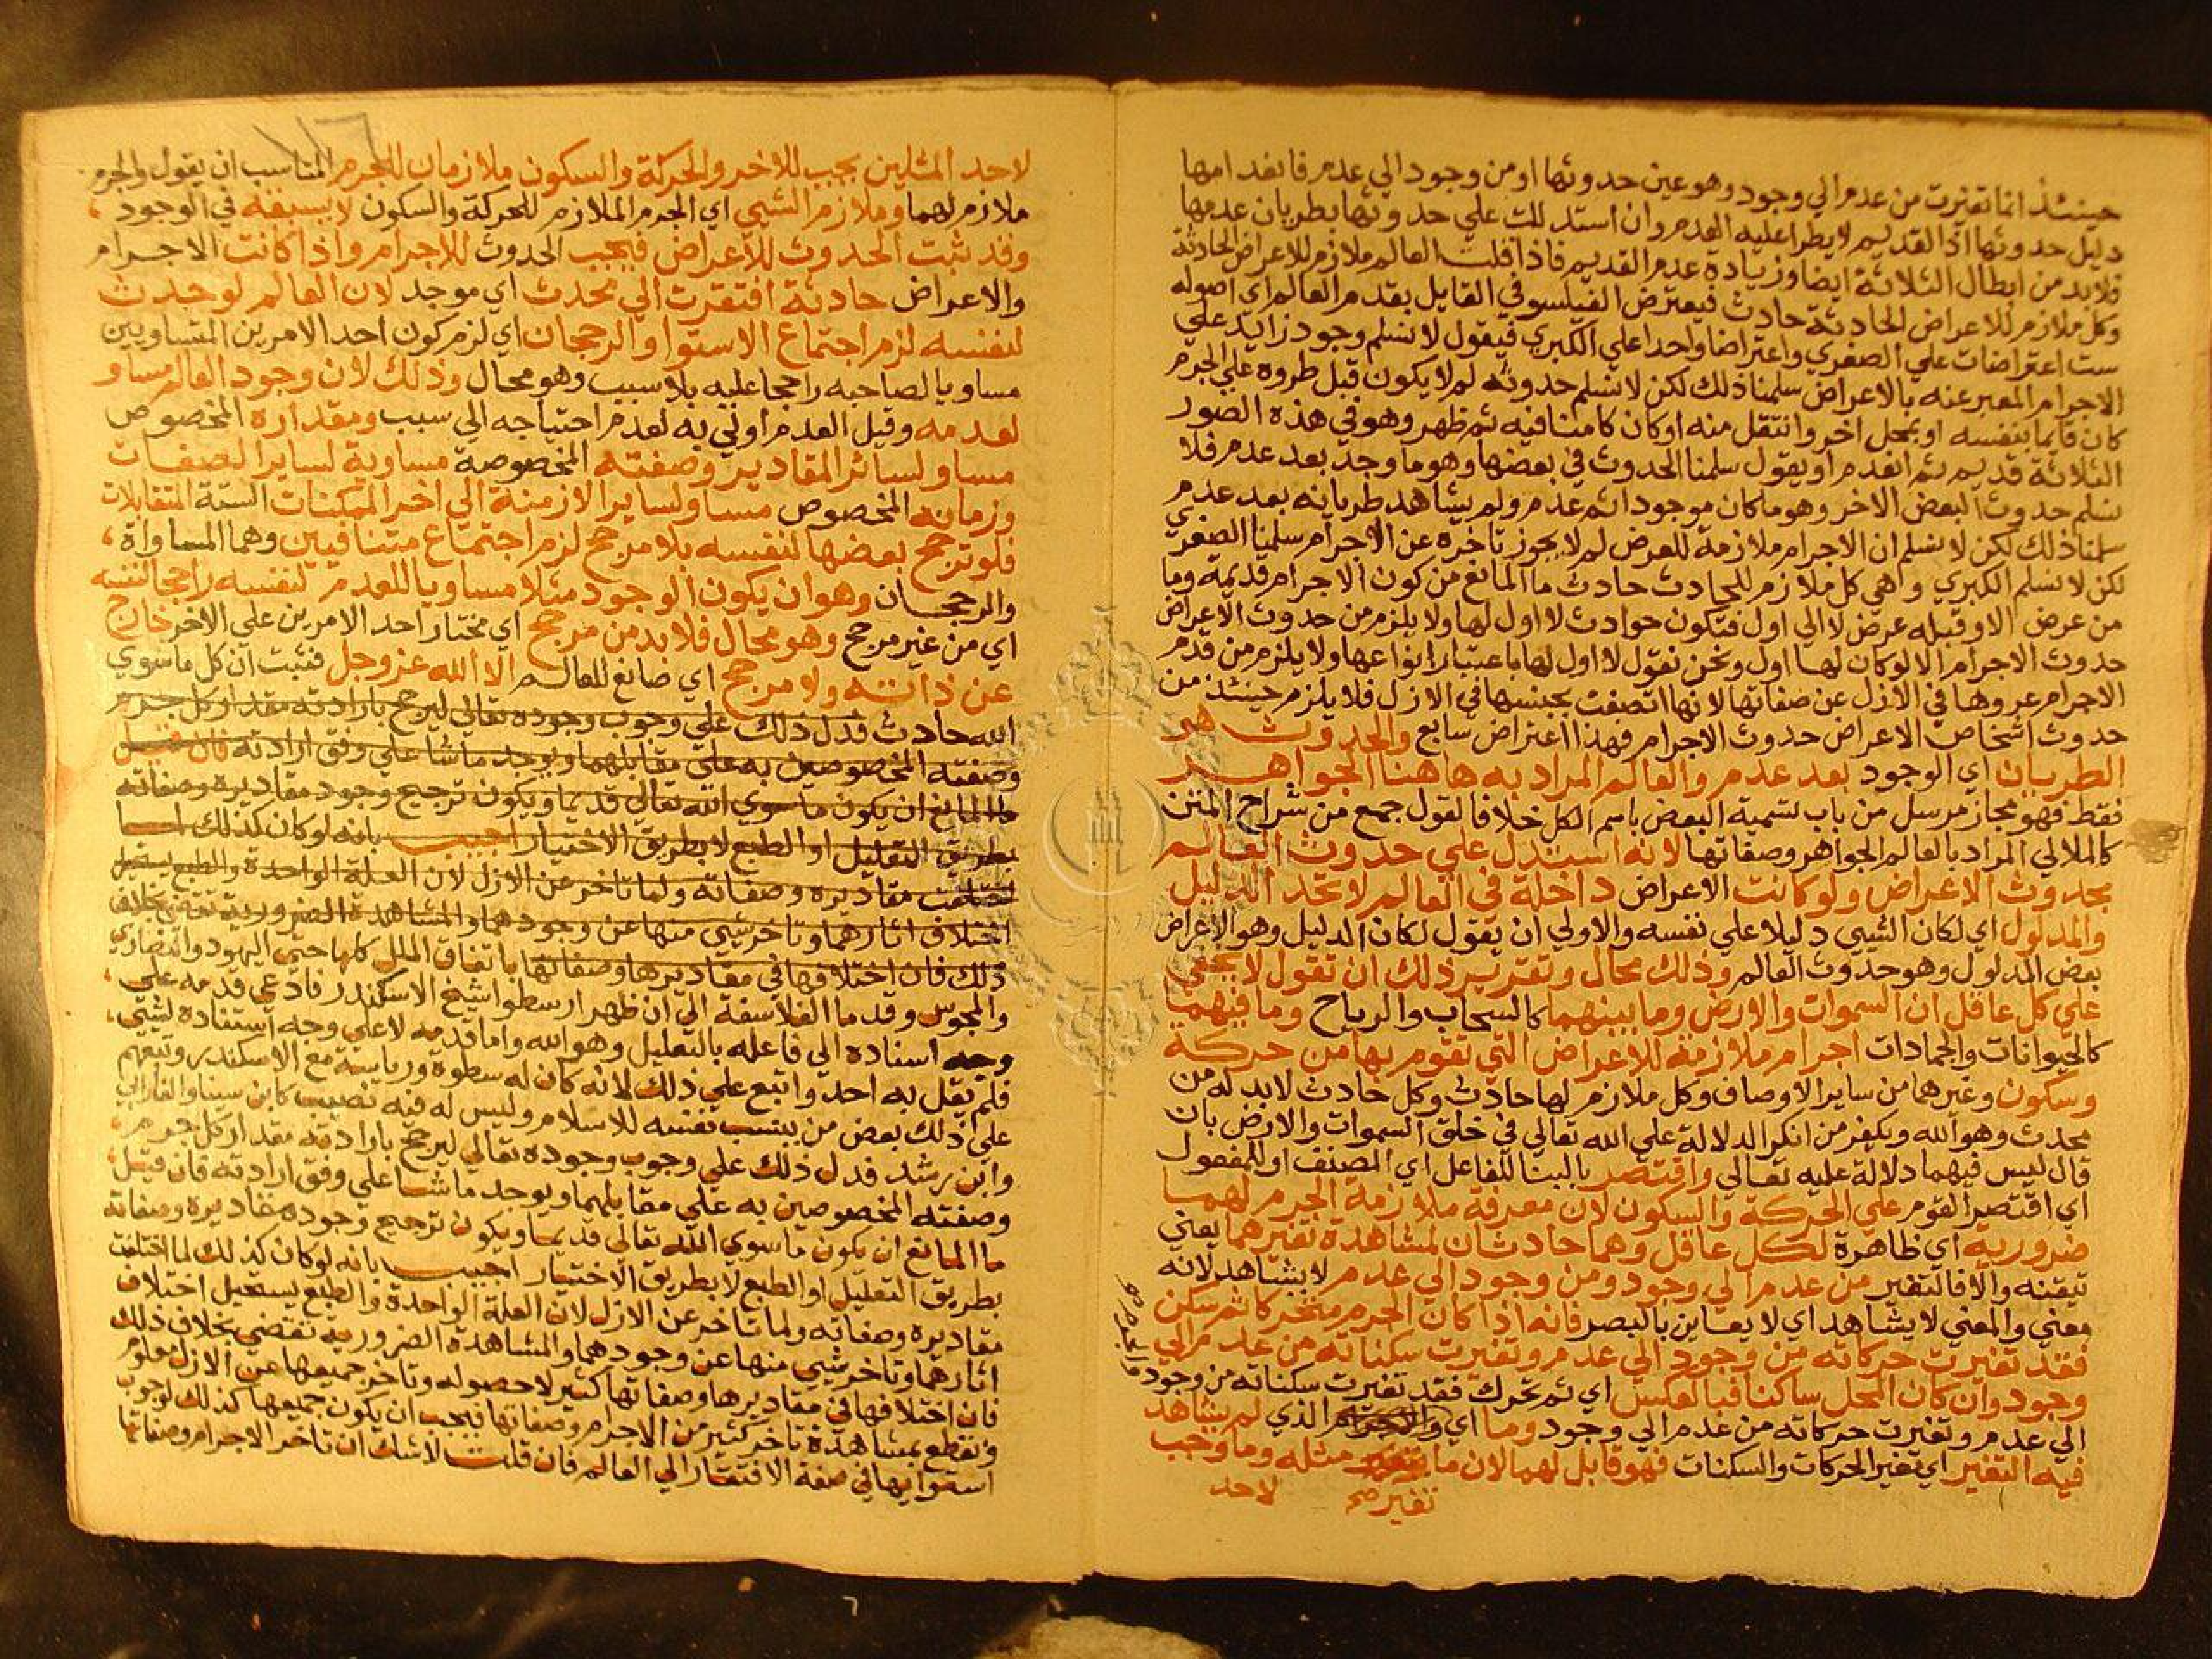 حينئذ انما تغيرت من عدم الي وجود وهو عين حدوثها او من وجود الي عدم فانعدامها
دليل حدوثها اذ القديم لا يطرا عليه العدم وان استدللت علي حدوثها بطريان عدمها
فلا بد من ابطال الثلاثة ايضا وزيادة عدم القديم فاذا قلت العالم ملازم للاعراض الحادثة
وكل ملازم للاعراض الحادثة حادث فيعترض الفيلسوفي القايل بقدم العالم اي اصوله
ست اعتراضات علي الصغري واعتراضا واحدا علي الكبري فيقول لا نسلم وجود زايد علي
الاجرام المعبر عنه بالاعراض سلمنا ذلك لكن لا نسلم حدوثه لم لا يكون قبل طروه علي الجرم
كان قايما بنفسه او بمحل اخر وانتقل منه او كان كامنا فيه ثم ظهر وهو في هذه الصور
الثلاثة قديم ثم انعدم او يقول سلمنا الحدوث في بعضها وهو ما وجد بعد عدم فلا
نسلم حدوث البعض الاخر وهو ما كان موجودا ثم عدم ولم يشاهد طريانه بعد عدم
سلمنا ذلك لكن لا نسلم ان الاجرام ملازمة للعرض لم لا يجوز تاخره عن الاجرام سلمنا الصغري
لكن لا نسلم الكبري وهي كل ملازم للحادث حادث ما المانع من كون الاجرام قديمة وما
من عرض الا وقبله عرض لا الي اول فتكون حوادث لا اول لها ولا يلزم من حدوث الاعراض
حدوث الاجرام الا لو كان لها اول ونحن نقول لا اول لها باعتبار انواعها ولا يلزم من قدم
الاجرام عروها في الازل عن صفاتها لانها اتصفت بجنسها في الازل فلا يلزم حينئذ من
حدوث اشخاص الاعراض حدوث الاجرام فهذا اعتراض سابع والحدوث هو
الطريان اي الوجود بعد عدم والعالم المراد به هاهنا الجواهر
فقط فهو مجاز مرسل من باب تسمية البعض باسم الكل خلافا لقول جمع من شراح المتن
كالملالي المراد بالعالم الجواهر وصفاتها لانه استدل علي حدوث العالم
بحدوث الاعراض ولو كانت الاعراض داخلة في العالم لاتحد الدليل
والمدلول اي لكان الشيي دليلا علي نفسه والاولي ان يقول لكان الدليل وهو الاعراض
بعض المدلول وهو حدوث العالم وذلك محال وتقرير ذلك ان تقول لا يخفي
علي كل عاقل ان السموات والارض وما بينهما كالسحاب والرياح وما فيهما
كالحيوانات والجمادات اجرام ملازمة للاعراض التي تقوم بها من حركة
وسكون وغيرهما من ساير الاوصاف وكل ملازم لها حادث وكل حادث لا بد له من
محدث وهو الله ويكفر من انكر الدلالة علي الله تعالي في خلق السموات والارض بان
قال ليس فيهما دلالة عليه تعالي واقتصر بالبنا للفاعل اي المصنف او للمفعول
اي اقتصر القوم علي الحركة والسكون لان معرفة ملازمة الجرم لهما
ضرورية اي ظاهرة لكل عاقل وهما حادثان لمشاهدة تغيرهما يعني
تيقنه والا فالتغير من عدم الي وجود ومن وجود الي عدم لا يشاهد لانه
معني والمعني لا يشاهد اي لا يعاين بالبصر فانه اذا كان الجرم متحركا ثم سكن
فقد تغيرت حركاته من وجود الي عدم وتغيرت سكناته من عدم الي
وجود وان كان المحل ساكنا فبالعكس اي ثم تحرك فقد تغيرت سكناته من وجود
الي عدم وتغيرت حركاته من عدم الي وجود وما اي الذي لم يشاهد
والجرم صح
فيه التغير اي تغير الحركات والسكنات فهو قابل لهما لان ما مثله وما وجب
تغير صح لاحد
لاحد المثلين يجب للاخر والحركة والسكون ملازمان للجرم المناسب ان يقول والجرم
ملازم لهما وملازم الشيي اي الجرم الملازم للحركة والسكون لا يسبقه في الوجود
وقد ثبت الحدوث للاعراض فيجب الحدوث للاجرام واذا كانت الاجرام
والاعراض حادثة افتقرت الي محدث اي موجد لان العالم لو حدث
لنفسه لزم اجتماع الاستوا والرجحان اي لزم كون احد الامرين المتساويين
مساويا لصاحبه راجحا عليه بلا سبب وهو محال وذلك لان وجود العالم مساو
لعدمه وقيل العدم اولي به لعدم احتياجه الي سبب ومقداره المخصوص
مساو لسائر المقادير وصفته المخصوصة مساوية لساير الصفات
وزمانه المخصوص مساو لساير الازمنة الي اخر الممكنات الستة المتقابلات
فلو ترجح بعضها لنفسه بلا مرجح لزم اجتماع متنافيين وهما المساواة
والرجحان وهو ان يكون الوجود مثلا مساويا للعدم لنفسه راجحا لنفسه
اي من غير مرجح وهو محال فلا بد من مرجح اي مختار احد الامرين علي الاخر خارج
عن ذاته ولا مرجح اي صانع للعالم الا الله عز وجل فثبت ان كل ما سوي
الله حادث فدل ذلك علي وجوب وجوده تعالي ليرجح بارادته مقدار كل جرم
وصفته المخصوصين به علي مقابلهما ويوجد ما شا علي وفق ارادته فان قيل
ما المانع ان يكون ما سوي الله تعالي قديما ويكون ترجيح وجود مقاديره وصفاته
بطريق التعليل او الطبع لا بطريق الاختيار اجيب بانه لو كان كذلك لما
اختلفت مقاديره وصفاته ولما تاخر عن الازل لان العلة الواحدة والطبع يستحيل
اختلاف اثارهما وتاخر شيي منها عن وجودهما والمشاهدة الضرورية تقتضي بخلاف
ذلك فان اختلافها في مقاديرها وصفاتها باتفاق الملل كلها حتي اليهود والنصاري
والمجوس وقدما الفلاسفة الي ان ظهر ارسطوا شيخ الاسكندر فادعي قدمه علي
وجه اسناده الي فاعله بالتعليل وهو الله واما قدمه لا علي وجه استناده لشيي
فلم يقل به احد واتبع علي ذلك لانه كان له سطوة ورياسة مع الاسكندر وتبعهم
علي ذلك بعض من ينتسب نفسه للاسلام وليس له فيه نصيب كابن سينا والفارابي
وابن رشد فدل ذلك علي وجوب وجوده تعالي ليرجح بارادته مقدار كل جرم
وصفته المخصوصين به علي مقابلهما ويوجد ما شا علي وفق ارادته فان قيل
ما المانع ان يكون ما سوي الله تعالي قديما ويكون ترجيح وجوده مقاديره وصفاته
بطريق التعليل او الطبع لا بطريق الاختيار اجيب بانه لو كان كذلك لما اختلفت
مقاديره وصفاته ولما تاخر عن الازل لان العلة الواحدة والطبع يستحيل اختلاف
اثارهما وتاخر شيي منها عن وجودهما والمشاهدة الضرورية تقتضي بخلاف ذلك
فان اختلافها في مقاديرها وصفاتها كثير لا حصر له وتاخر جميعها عن الازل معلوم
ونقطع بمشاهدة تاخر كثير من الاجرام وصفاتها فيجب ان يكون جميعها كذلك لوجوب
استوايها في صفة الافتقار الي العالم فان قلت لا شك ان تاخر الاجرام وصفاتها